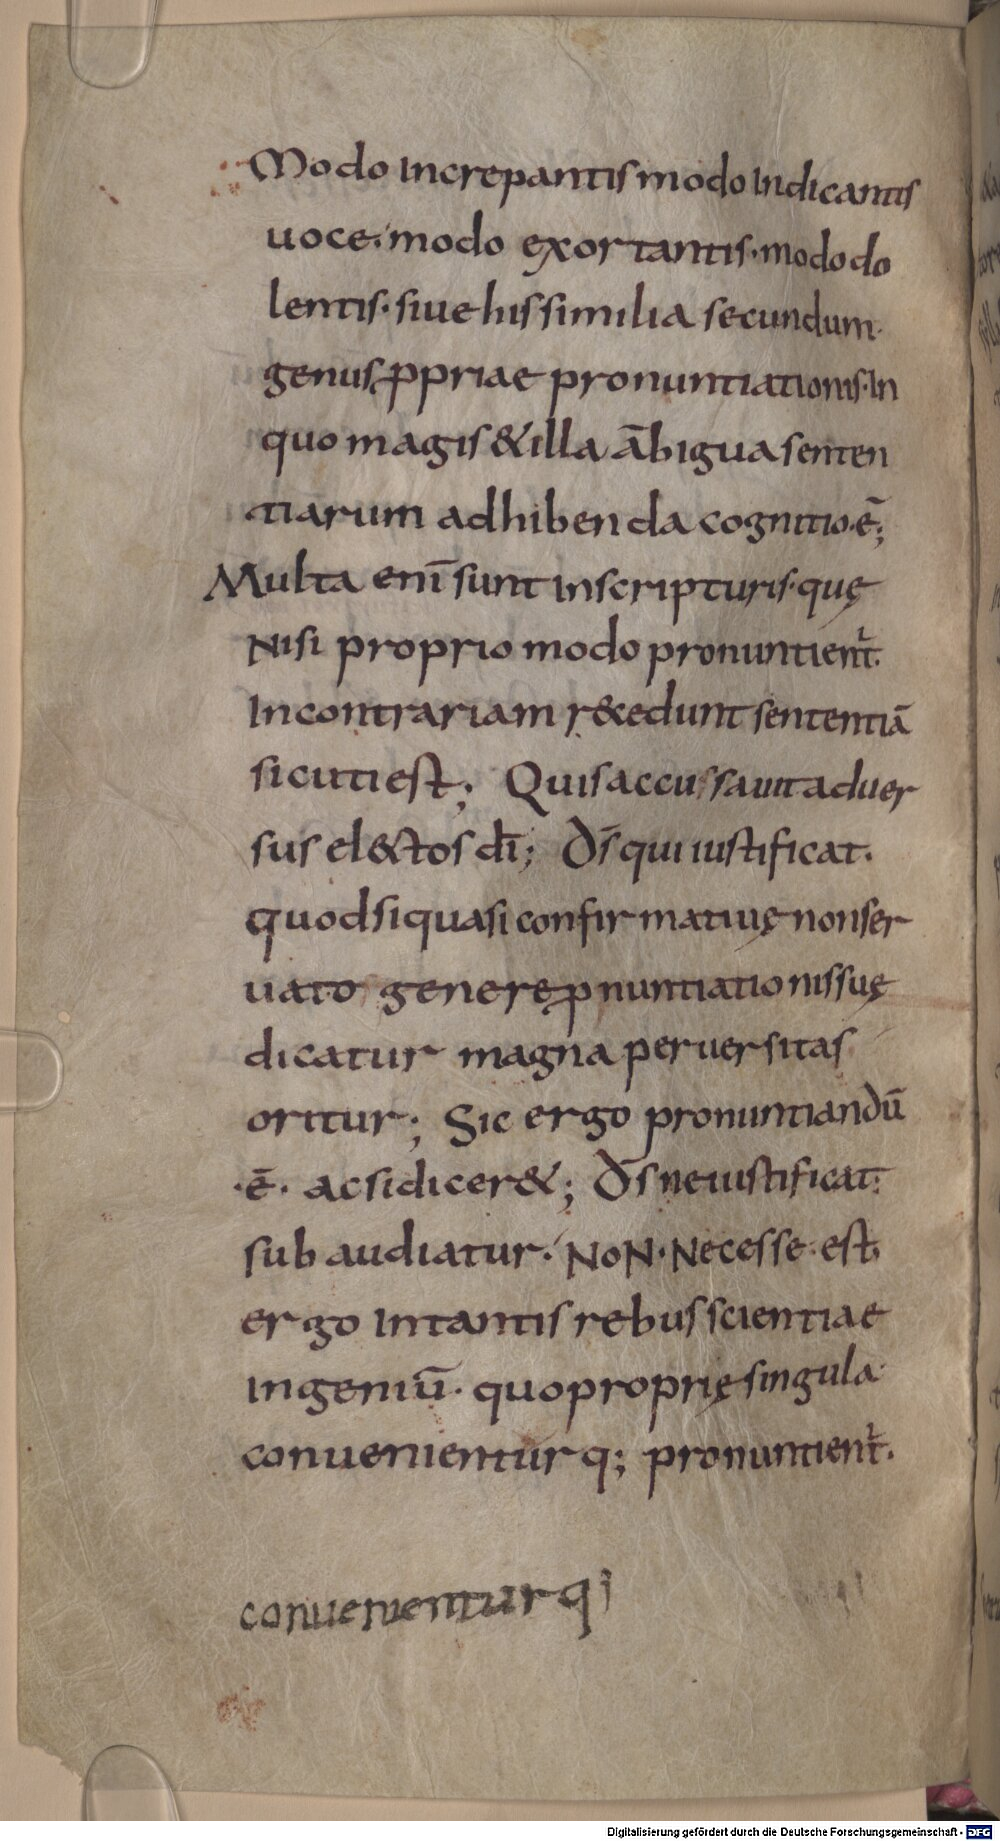 Modo increpantis modo indicantis
uoce. modo exortantis. modo do
lentis. siue his similia secundum
genus ꝓpriae pronuntiationis. in
quo magis & illa ābigua senten
tiarum adhibenda cognitio. ē;
Multa enī sunt in scripturis. quę
Nisi proprio modo pronuntient᷑.
In contrariam r&edunt sententiā
sicuti est; Quis accussauit aduer
sus el&ctos dī; D̄s qui iustificat.
quod si quasi confirmatiuę non ser
uato genere ꝓnuntiationis suę
dicatur magna peruersitas
oritur; Sic ergo pronuntiandū
.ē. ac si dicer&; D̄s ne iustificat.
subaudiatur. NoN. Necesse. est.
ergo in tantis rebus scientiae
ingeniū. quo proprię singula
conuenienturq; pronuntient᷑.
conuenienturq;
Digitalisierung gefördert durch die Deutsche Forschungsgemeinschaft - DFG